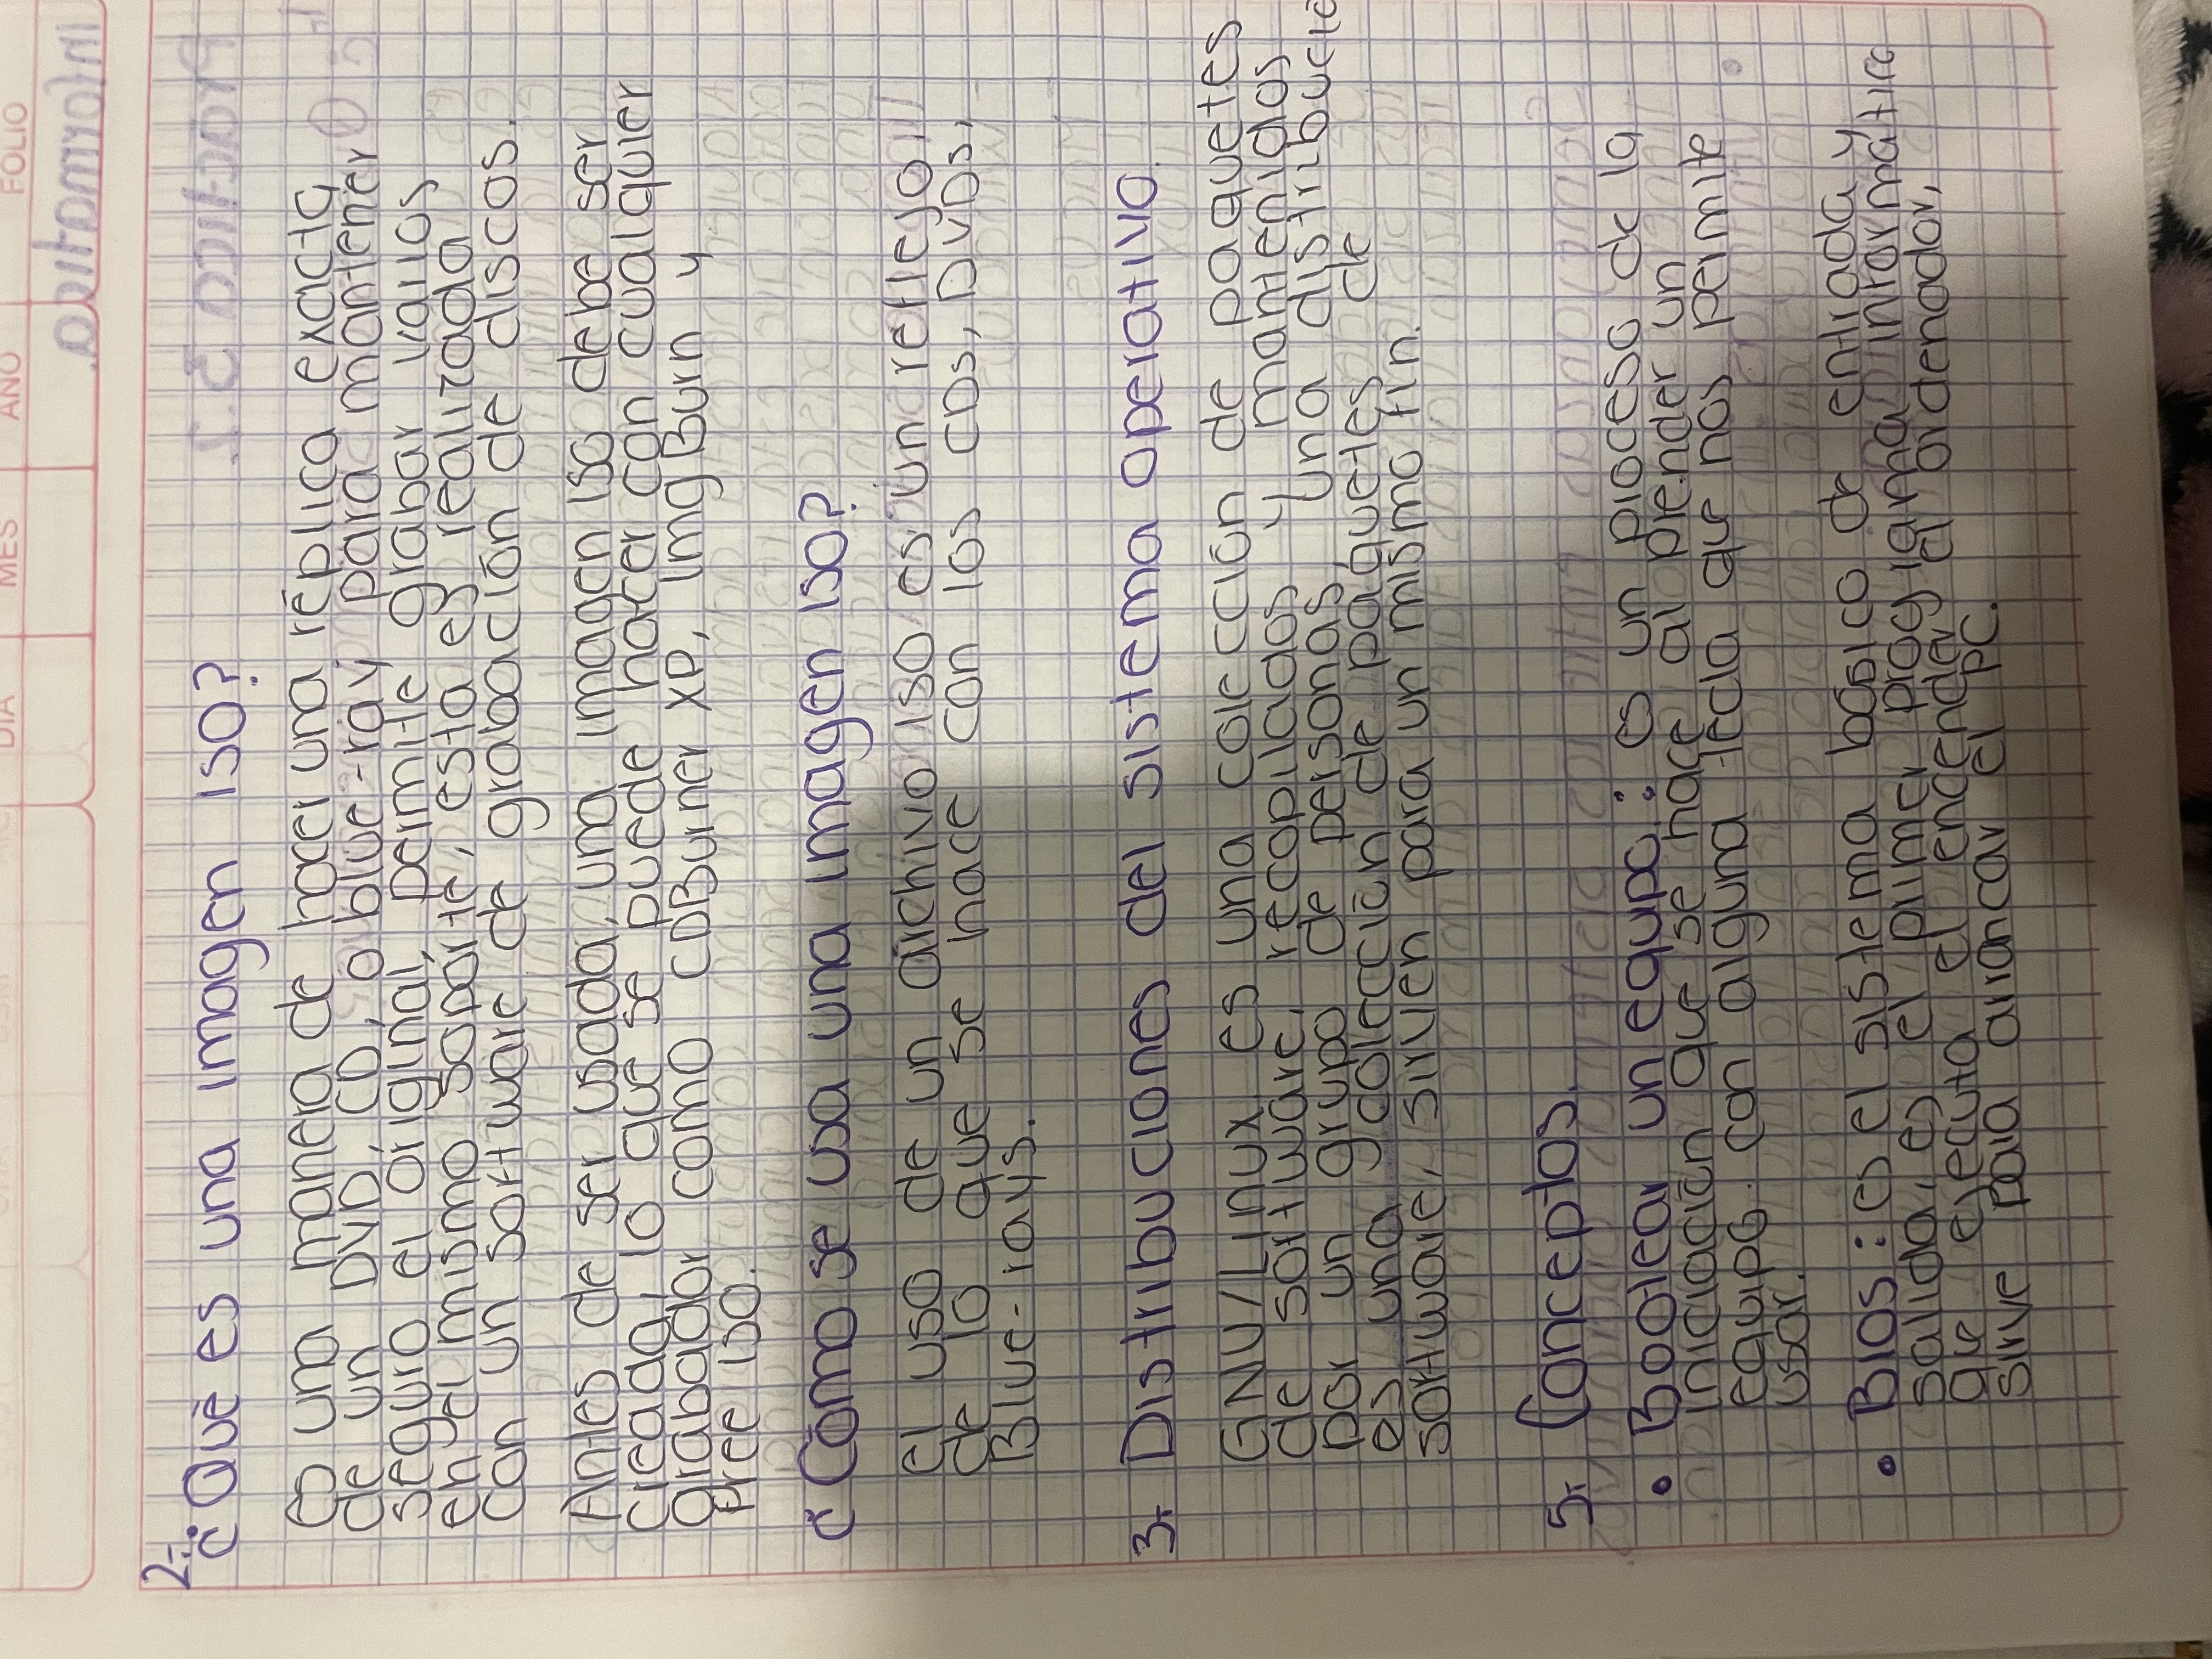 DIA MES AÑO FOLIO
2-.
¿Qué es una imagen ISO?
es una manera de hacer una réplica exacta
de un DVD, CD, o blue-ray para mantener
seguro el original, permite grabar varios
en el mismo soporte, esta es realizada
con un software de grabación de discos.
Antes de ser usada, una imagen ISO debe ser
creada, lo que se puede hacer con cualquier
grabador como CDBurner XP, ImgBurn y
Free ISO.
¿Cómo se usa una imagen ISO?
el uso de un archivo ISO es un reflejo
de lo que se hace con los CDs, DVDs,
Blue-rays.
3. Distribuciones del sistema operativo.
GNU/Linux es una colección de paquetes
de software, recopilados y mantenidos
por un grupo de personas, una distribució
es una colección de paquetes de
software, sirven para un mismo fin.
5. Conceptos.
• Bootear un equipo: es un proceso de la
iniciación que se hace al prender un
equipo con alguna tecla que nos permite
usar.
• Bios: es el sistema básico de entrada y
salida, es el primer programa informático
que ejecuta el encender el ordenador,
sirve para arrancar el PC.